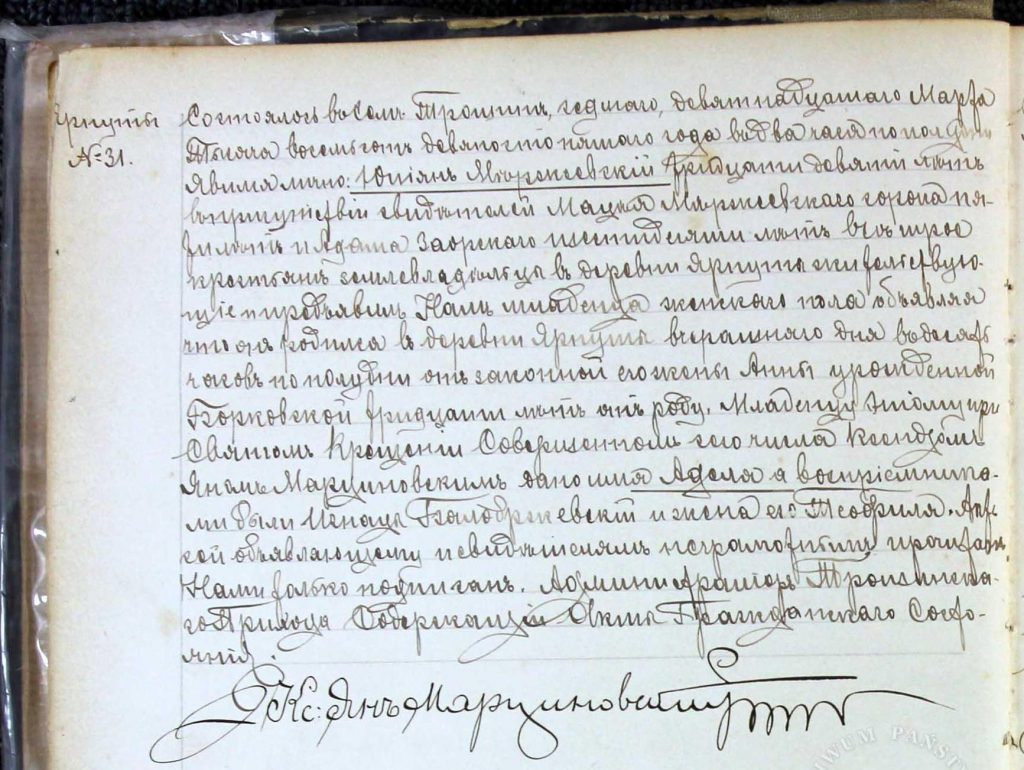 Ярнуты
№ 31.
Состоялось въ селѣ Трошинѣ, седмаго, девятнадцатаго Марта
Тысяча восемьсотъ девяносто пятаго года въ два часа по полудни
Явился лично: Юліянъ Мюржеевскій тридцати девяти лѣтъ
въ присутствіи свидѣтелей Мацея Миржеевскаго сорока пя-
ти лѣтъ и Адама Заорскаго шестидесяти лѣтъ всѣ трое
крестьянъ землевладѣльца въ деревни Ярнуты жительствую-
щіе и предъявилъ Намъ младенца женскаго пола объявляя
что онъ родился въ деревни Ярнуты вчерашняго дня въ десять
часовъ по полудни отъ законной его жены Анны урожденной
Борковской тридцати лѣтъ отъ роду. Младенцу этому при
Святомъ Крещеніи Совершенномъ сего числа Ксендзомъ
Яномъ Марциновскимъ дано имя Аделя а воспріемника-
ми были Игнацы и жена его Теофиля. Актъ
сей объявляющему и свидѣтелямъ неграмотнымъ прочитанъ
Нами только подписанъ. Администраторъ Трошинска-
го Прихода Содержащій Акты Гражданскаго Состо-
янія.
Кс: Янъ Марциновскій
WUM PAŃST